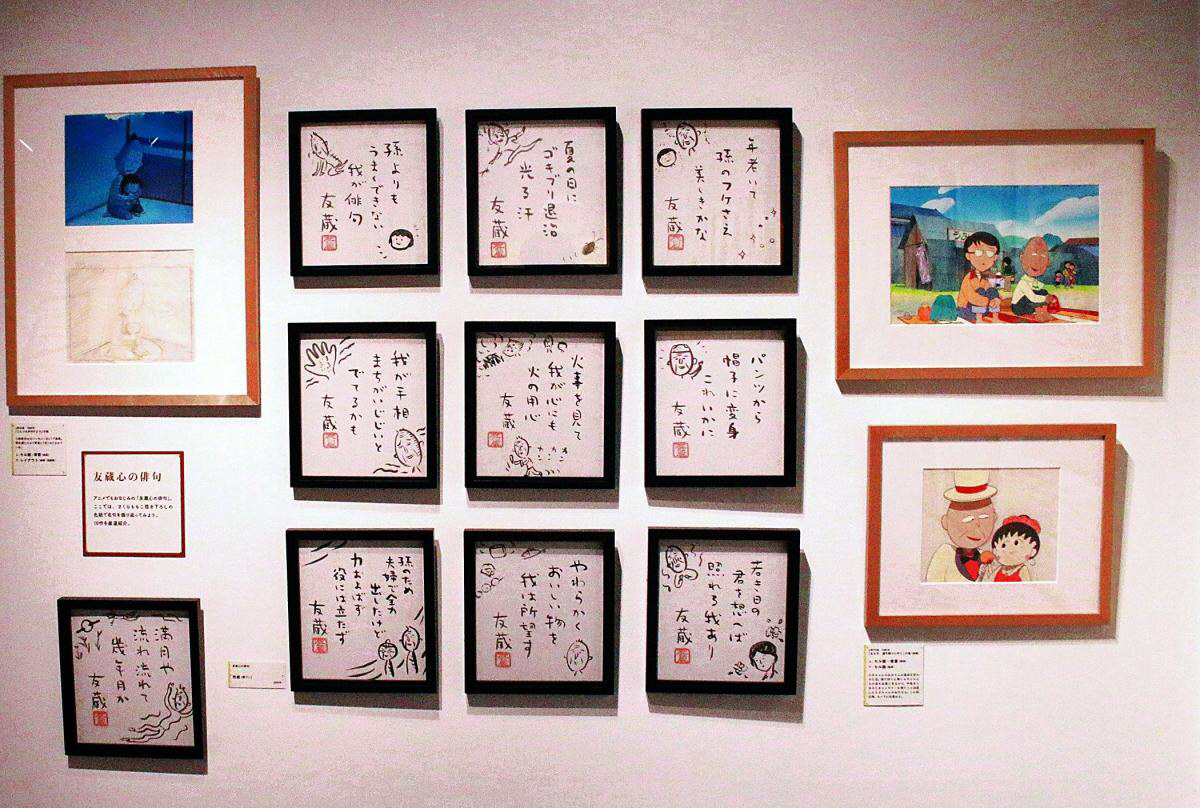 孫よりも
うまくできない
我が俳句
友蔵
夏の日に
ゴキブリ退治
光る汗
友蔵
年老いて
孫のフケさえ
美しきかな
友蔵
我が手相
まちがいじじいと
でてるかも
友蔵
火事を見て
我が心にも
火の用心
友蔵
パンツから
帽子に変身
これいかに
友蔵
孫のため
夫婦で全力
出したけど
力およばず
役には立たず
友蔵
やわらかく
おいしい物を
我は所望す
友蔵
若き日の
君を想へば
照れる我あり
友蔵
友蔵心の俳句
アニメでもおなじみの「友蔵心の俳句」。
ここでは、さくらももこ描き下ろしの
色紙で名句を振り返ってみよう。
10作を厳選紹介。
満月や
流れ流れて
幾年月か
友蔵